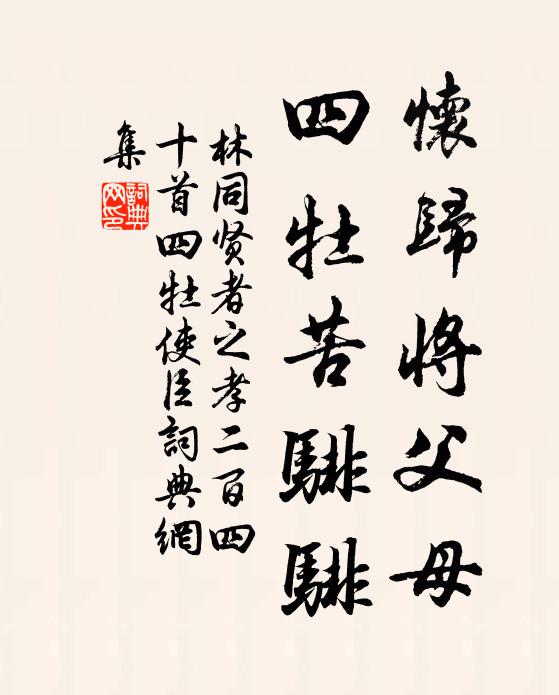 懷歸將父母
四牡苦騑騑
林同贤者之孝二百四
十首四牡使臣詞典網
集
詞典網印